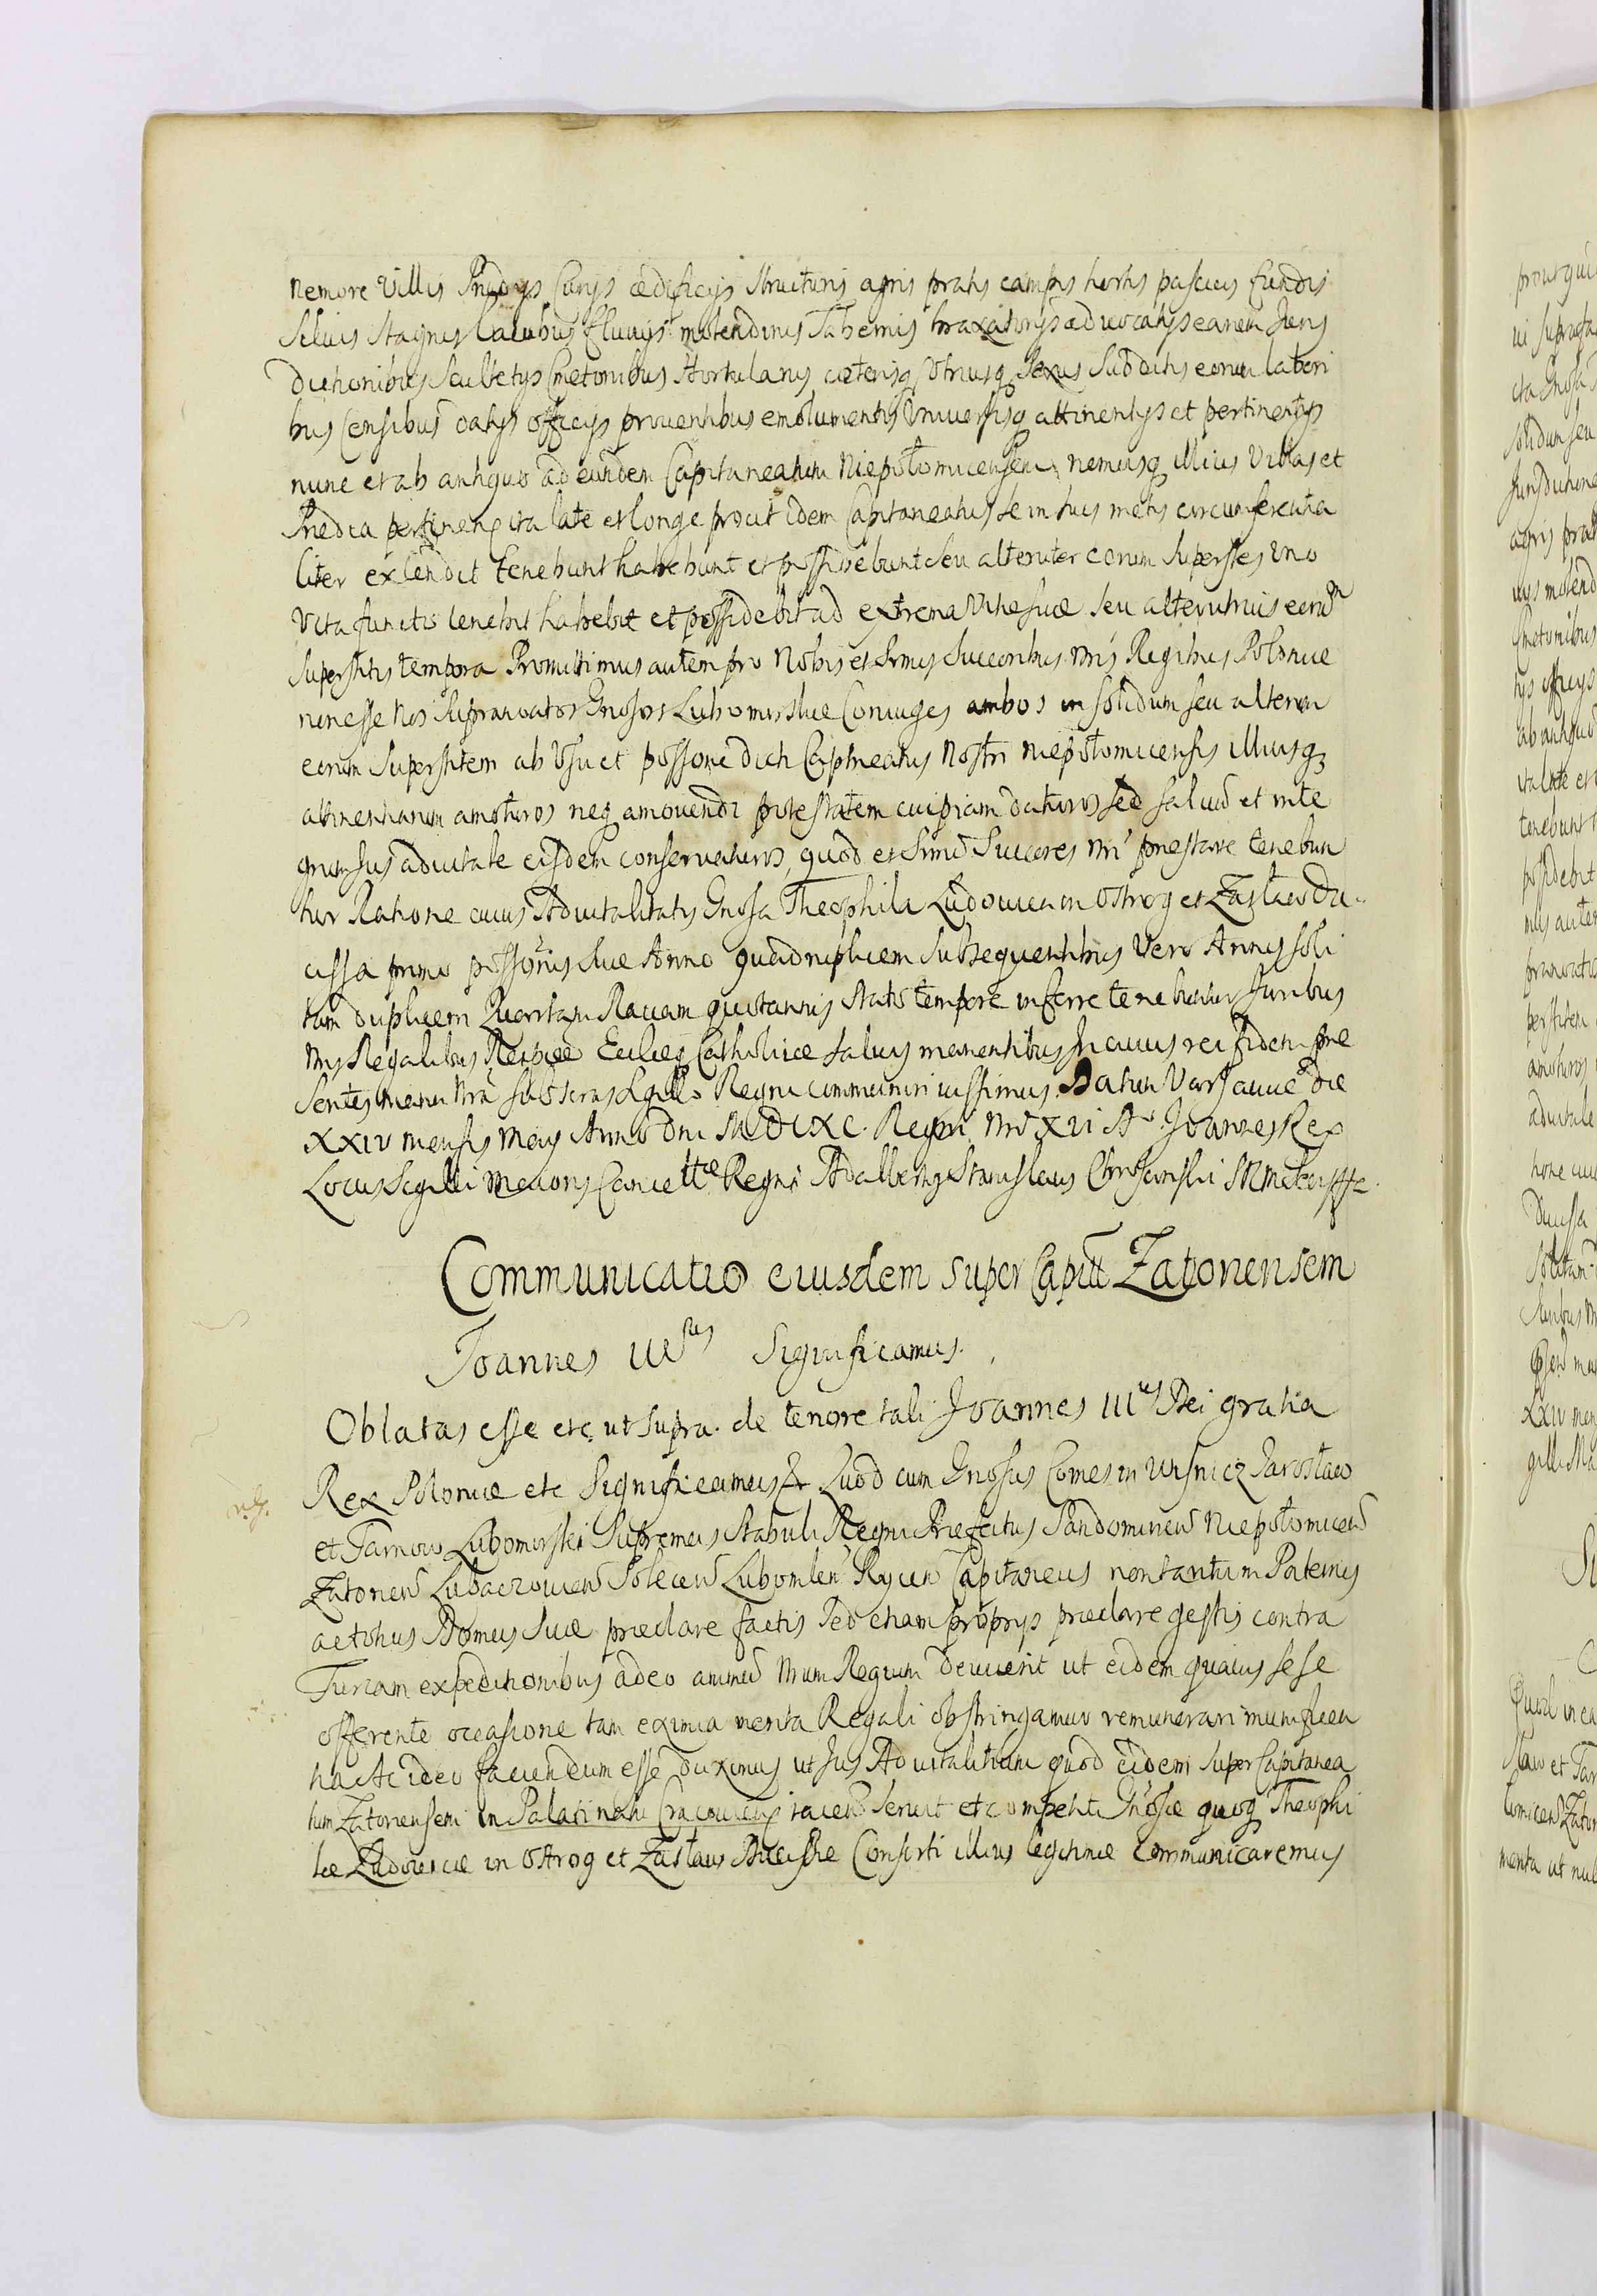 nemore Villis Prædys Curys ædificijs structuris agris pratis campis hortis pascuis fundis
silvis stagnis lacubus fluuijs molendinis Tabernis braxatorijs aduocatijs earum Juris
dictionibus Scultetijs Cmetonibus Hortulanis cæterisq Vtriusq Sexus Subditis eorum labori
bus Censibus datijs officijs prouentibus emolumentis Vniuersisq attinentijs et pertinentijs
nunc et ab antiquo ad eundem Capitaneatum Niepołomicensem nemusq illius Villas et
Prædia pertinen ita late et longe prout idem Capitaneatus se in suis metis circumferentia
liter extendit tenebunt habebunt et possidebunt seu alteruter eorum superstes uno
vita functo tenebit habebit et possidebit ad extrema Vitæ suæ seu alterutrius eorum
superstitis tempora Promittimus autem pro Nobis et Srmis Succoribus nris Regibus Poloniæ
non esse Nos supranoatos Gnosos Lubomirskie Coniuges ambos in solidum seu alterum
eorum superstitem ab Vsu et possone dicti Captneatus Nostri Niepołomicensis illiusq
attinentiarum amoturos neq amouendi potestatem cuipiam daturos sed saluum et inte
grum Jus aduitale eisdem conseruaturos, quod et Srmi Succores nri præstare tenebun
tur Ratione cuius Aduitalitatis Gnosa Theophila Ludouica in Ostrog et Zasław Du-
cissa primo possonis suæ Anno quadruplicem subsequentibus Vero Annis soli
tam duplicem Quartam Rauam quotannis stato tempore inferre tenebuntur Juribus
nris Regalibus Reipcæ Eccliæq Catholicæ saluis manentibus In cuius rei fidem præ
sentes manu nra subscras Sgillo Regni communiri iussimus. Datum Varsauiæ die
XXIV mensis Maij Anno Dni MDCXC. Regni nri XVI Ao Joannes Rex
Locus Sigilli Maioris Cancellæ Regni Adalbertus Stanislaus Chrosciński SRMttis
Communicatio eiusdem super Capittum Zatorensem
Joannes IIItius Significamus.
Oblatas esse etc ut supra. de tenore tali Joannes IIItius Dei gratia
Rex Poloniæ etc Significamus Quod cum Gnosus Comes in Wisnicz Jarosław
et Tarnow Lubomirski Supremus Stabuli Regni Præfectus Sandomirien Niepołomicen
Zatorien Lubaczouien Solecen Lubomlen Rycen Capitaneus non tantum Paternis
actibus Domus Suæ præclare factis Sed etiam proprijs præclare gestis contra
Turcam expeditionibus adeo animum nrum Regium deuicerit ut eidem quauis sese
offerente occasione tam eximia merita Regali obstringamur remunerari munificen
tia Ac ideo faciendum esse duximus ut Jus Aduitalitium quod eidem super Capitanea
tum Zatoriensem in Palatinatu Cracouien iacen seruit et competit Gnosæ quoq Theophi
læ Ludouicæ in Ostrog et Zasław Ducissæ Consorti illius legitimæ communicaremus